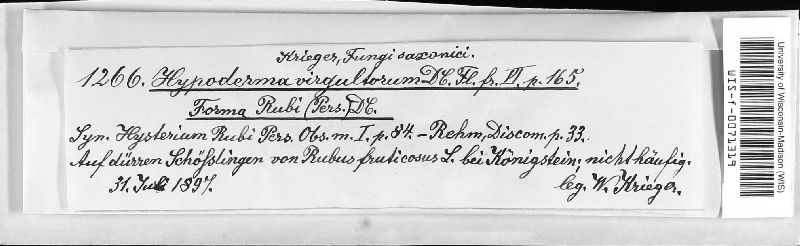 Krieger, Fungi saxonici.
1266. Hypoderma virgultorum DC. Fl. fr. VI. p. 165.
Forma Rubi (Pers.) DC.
Syn. Hysterium Rubi Pers. Obs. m. I. p. 84. – Rehm, Discom. p. 33.
Auf dürren Schößlingen von Rubus fruticosus L. bei Königstein; nicht häufig.
31. Juli 1897. leg. W. Krieger.
University of Wisconsin-Madison (WIS)
WIS-f-0071319